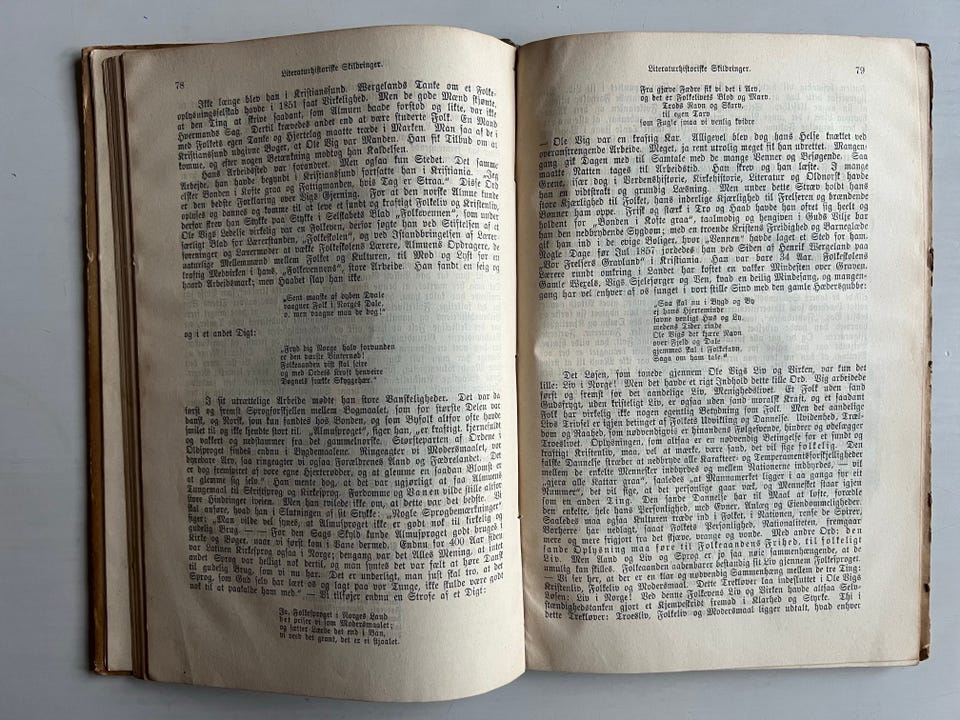 78
Literaturhistoriske Skildringer.
Ikke længe blev han i Kristianssund. Wergelands Tanke om et Folke-
oplysningsselskab havde i 1851 faaet Virkelighed. Men de gode Mænd skjønte,
at den Ting at skrive saadant, som Almuen baade forstod og likte, var ikke
Hvermands Sag. Dertil krævedes andet end at være studerte Folk. En Mand
med Folkets egen Tanke og Hjertelag maatte træde i Marken. Man saa af de i
Kristianssund udgivne Bøger, at Ole Vig var Manden. Han fik Tilbud om at
komme, og efter nogen Betænkning modtog han Kaldelsen.
Hans Arbeidssted var forandret. Men ogsaa kun Stedet. Det samme
Arbeide, han havde begyndt i Kristianssund fortsatte han i Kristiania. „Jeg
elsker Bonden i Kofte graa og Fattigmanden, hvis Tag er Straa.“ Disse Ord
er den bedste Forklaring over Vigs Gjerning. For at den norske Almue kunde
opluses og dannes og komme til at leve et sundt og kraftigt Folkeliv og Kristenliv,
derfor skrev han Stykke paa Stykke i Selskabets Blad „Folkevennen“, som under
Ole Vigs Ledelse virkelig var en Folkeven, derfor søgte han ved Stiftelsen af et
særligt Blad for Lærerstanden, „Folkeskolen“, og ved Istandbringelsen af Lærer-
foreninger og Lærermøder at vække Folkeskolens Lærere, Almuens Opdragere, de
naturlige Mellemmænd mellem Folket og Kulturen, til Mod og Lyst for en
kraftig Medvirken i hans, „Folkevennens“, store Arbeide. Han fandt en seig og
haard Arbeidsmark; men Haabet slap han ikke.
„Sent maaske af dyben Dvale
vaagner Folk i Norges Dale,
o, men vaagne maa de dog!“
og i et andet Digt:
„Fryd dig Norge halv forvunden
er den værste Vinternød!
Folkeaanden vist skal seire
og med Ordets Kraft henveire
Døgnets frække Skyggehær.“
I sit utrættelige Arbeide mødte han store Vanskeligheder. Det var da
først og fremst Sprogforskjellen mellem Bogmaalet, som for største Delen var
dansk, og Norsk, som kun fandtes hos Bonden, og som Byfolk altfor ofte havde
smilet til og ikke hændte stort til. „Almusproget“, siger han, „er kraftigt, kjernefuldt
og vakkert og nedstammer fra det gammelnorske. Størsteparten af Ordene i
Oldsproget findes endnu i Bygdemaalene. Ringeagter vi Modersmaalet, vor
dyrebare Arv, saa ringeagter vi ogsaa Forældrenes Aand og Fædrelandet. Det
er dog fremspiret af vore egne Hjerterødder, og at glemme en saadan Blomst er
at glemme sig selv.“ Han mente dog, at det var ugjørligt at faa Almuens
Tungemaal til Skriftsprog og Kirkesprog. Fordomme og Vanen vilde stille altfor
store Hindringer iveien. Men han tvilede ikke om, at dette var det bedste. Vi
skal anføre, hvad han i Slutningen af sit Stykke: „Nogle Sprogbemærkninger“
siger: „Man vilde vel synes, at Almusproget ikke er godt nok til kirkelig og
gudelig Brug. — — For den Sags Skyld kunde Almusproget godt bruges i
Kirke og Bøger, naar vi først kom i Vane dermed. Endnu for 400 Aar siden
var Latinen Kirkesprog ogsaa i Norge; dengang var det Alles Mening, at intet
andet Sprog var helligt nok dertil, og man syntes det var fælt at høre Dansk
til gudelig Brug, som vi nu har. Det er underligt, man just skal tro, at det
Sprog, som Gud selv har lært os og lagt paa vor Tunge, ikke skulde være godt
nok til at paakalde ham med.“ — Vi tilføjer endnu en Strofe af et Digt:
Ja, Folkesproget i Norges Land
det priser vi som Modersmaalet;
og sætter Lærde det end i Ban,
vi veid det grant, det er ei stjaalet.
Literaturhistoriske Skildringer.
79
Fra gjæve Fædre fik vi det i Arv,
og det er Folkelivets Blod og Marv.
Trods Ravn og Skarv,
til egen Tarv
som Fugle smaa vi venlig kvidre
— Ole Vig var en kraftig Kar. Alligevel blev dog hans Helse trættet ved
overanstrengende Arbeide. Meget, ja rent utrolig meget fik han udrettet. Mangen-
gang gik Dagen med til Samtale med de mange Venner og Besøgende. Saa
maatte Natten tages til Arbeidstid. Han skrev og han læste. I mange
Grene, især dog i Verdenshistorie, Kirkehistorie, Literatur og Oldnorsk havde
han en vidtstrakt og grundig Læsning. Men under dette Stræv holdt hans
store Kjærlighed til Folket, hans inderlige Kjærlighed til Frelseren og brændende
Bønner ham oppe. Frisk og stærk i Tro og Haab havde han ofret sig helt og
holdent for „Bonden i Kofte graa“, taalmodig og hengiven i Guds Vilje bar
han den nedbrydende Sygdom; med en troende Kristens Freidighed og Barneglæde
gik han ind i de evige Boliger, hvor „Vennen“ havde laget et Sted for ham.
Nogle Dage før Jul 1857 jordedes han ved Siden af Henrik Wergeland paa
„Vor Frelsers Gravlund“ i Kristiania. Han var bare 34 Aar. Folkeskolens
Lærere rundt omkring i Landet har kostet en vakker Mindesten over Graven.
Gamle Wexels, Vigs Sjelesørger og Ven, kvad en deilig Mindesang, og mangen-
gang har vel enhver af os sunget i vort stille Sind med den gamle Hædersgubbe:
„Saa skal nu i Bygd og By
ej hans Hjerteminde
savne venligt Hus og Ly,
medens Tider rinde
Ole Vigs det kjære Navn
over Fjeld og Dale
gjemmes skal i Folkefavn,
Saga om ham tale.“
Det Løsen, som tonede gjennem Ole Vigs Liv og Virken, var kun det
lille: Liv i Norge! Men det havde et rigt Indhold dette lille Ord. Vig arbeidede
først og fremst for det aandelige Liv, Menighedslivet. Et Folk uden sand
Gudsfrygt, uden kristeligt Liv, er ogsaa uden sand moralsk Kraft, og et saadant
Folk har virkelig ikke nogen egentlig Betydning som Folk. Men det aandelige
Livs Trivsel er igjen betinget af Folkets Udvikling og Dannelse. Uvidenhed, Træl-
dom og Raahed, som nødvendigvis er hinandens Følgesvende, hindrer og ødelægger
Troeslivet. Oplysningen, som altsaa er en nødvendig Betingelse for et sundt og
kraftigt Kristenliv, maa, vel at mærke, være sand, det vil sige folkelig. Den
falske Dannelse stræber at nedbryde alle Karakter- og Temperamentsforskjelligheder
mellem de enkelte Mennesker indbyrdes og mellem Nationerne indbyrdes, — vil
„gjera alle Kattar graa“, saaledes „at Mannamerket ligger i aa ganga for eit
Nummer“, det vil sige, at det personlige gaar væk, og Mennesket staar igjen
som en anden Ting. Den sande Dannelse har til Maal at løfte, forædle
den enkelte, hele hans Personlighed, med Evner, Anlæg og Eiendommeligheder.
Saaledes maa ogsaa Kulturen træde ind i Folket, i Nationen, rense de Spirer,
Vorherre har nedlagt, faaat Folkets Personlighed, Nationaliteten, fremgaar
mere og mere frigjort fra det skjæve, vrange og vonde. Med andre Ord: den
sande Oplysning maa føre til Folkeaandens Frihed, til folkeligt
Liv. Men Aand og Liv og Sprog er jo saa nøie sammenhængende, at de
umulig kan skilles. Folkeaanden aabenbarer bestandig sit Liv gjennem Folkesproget.
— Vi ser her, at der er en klar og nødvendig Sammenhæng mellem de tre Ting:
Kristenliv, Folkeliv og Modersmaal. Dette Trekløver laa indesluttet i Ole Vigs
Løsen: Liv i Norge! Ved denne Folkevens Liv og Virken havde altsaa Selv-
stændighedstanken gjort et Kjempeskridt fremad i Klarhed og Styrke. Thi i
dette Trekløver: Troesliv, Folkeliv og Modersmaal ligger udtalt, hvad enhver